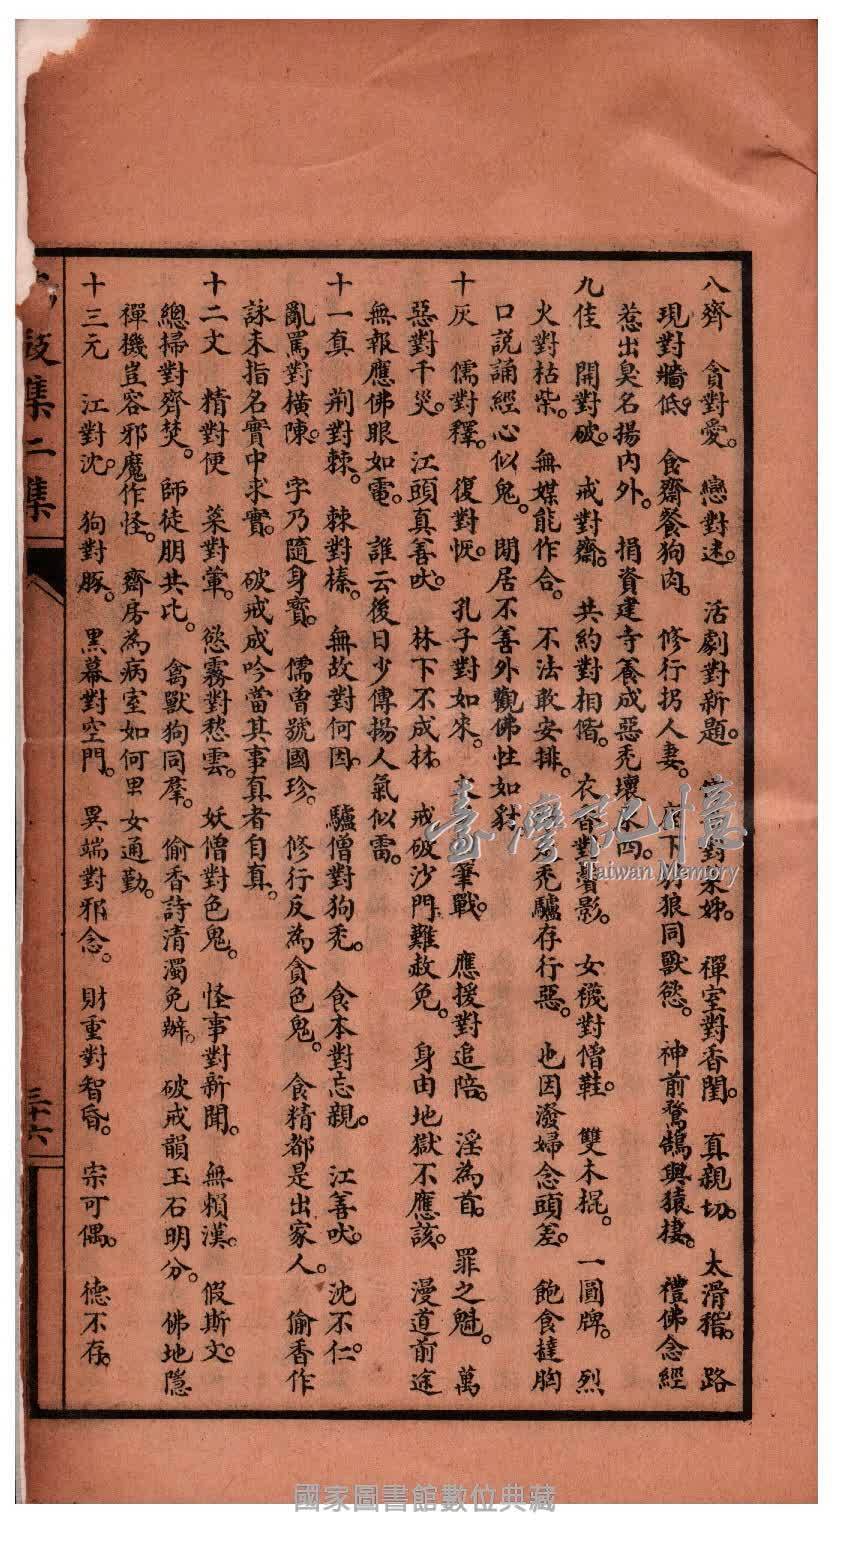 八齊　貪對愛。戀對迷。活劇對新題。對禪室對香閨。真親切。太滑稽。路
現對牆低。食齋餐狗肉。修行拐人妻。下狼同獸慾。神前鶩鵠與猿棲。禮佛念經
惹出臭名揚內外。捐資建寺養成惡禿壞
九佳　開對破。戒對齋。共約對相偕。衣香對鬢影。女襪對僧鞋。雙木棍。一圓牌。烈
火對枯柴。無媒能作合。不法敢安排。禿驢存行惡。也因潑婦念頭差。飽食撻胸
口說誦經心似鬼。閒居不善外觀佛性如豺。
十灰　儒對釋。復對恢。孔子對如來。筆戰。應援對追陪。淫為首。罪之魁。萬
惡對千災。江頭真善吠。林下不成材。戒破沙門難赦免。身由地獄不應該。漫道前途
無報應佛眼如電。誰云後日少傳揚人氣似雷。
十一真　荊對棘。棘對榛。無故對何因。驢僧對狗禿。食本對忘親。江善吠。沈不仁。
亂罵對橫陳。字乃隨身寶。儒曾號國珍。修行反為貪色鬼。食精都是出家人。偷香作
詠未指名實中求實。破戒成吟當其事真者自真。
十二文　精對便　菜對葷。慾霧對愁雲。妖僧對色鬼。怪事對新聞。無賴漢。假斯文。
總掃對齊焚。師徒朋共比。禽獸狗同羣。偷香詩清濁免辨。破戒韻玉石明分。佛地隱
禪機豈容邪魔作怪。齋房為病室如何男女通勤。
十三元　江對沈。狗對豚。黑幕對空門。異端對邪念。財重對智昏。宗可偶。德不存。
鼓集二集
三十六
臺灣記憶
Taiwan Memory
國家圖書館數位典藏